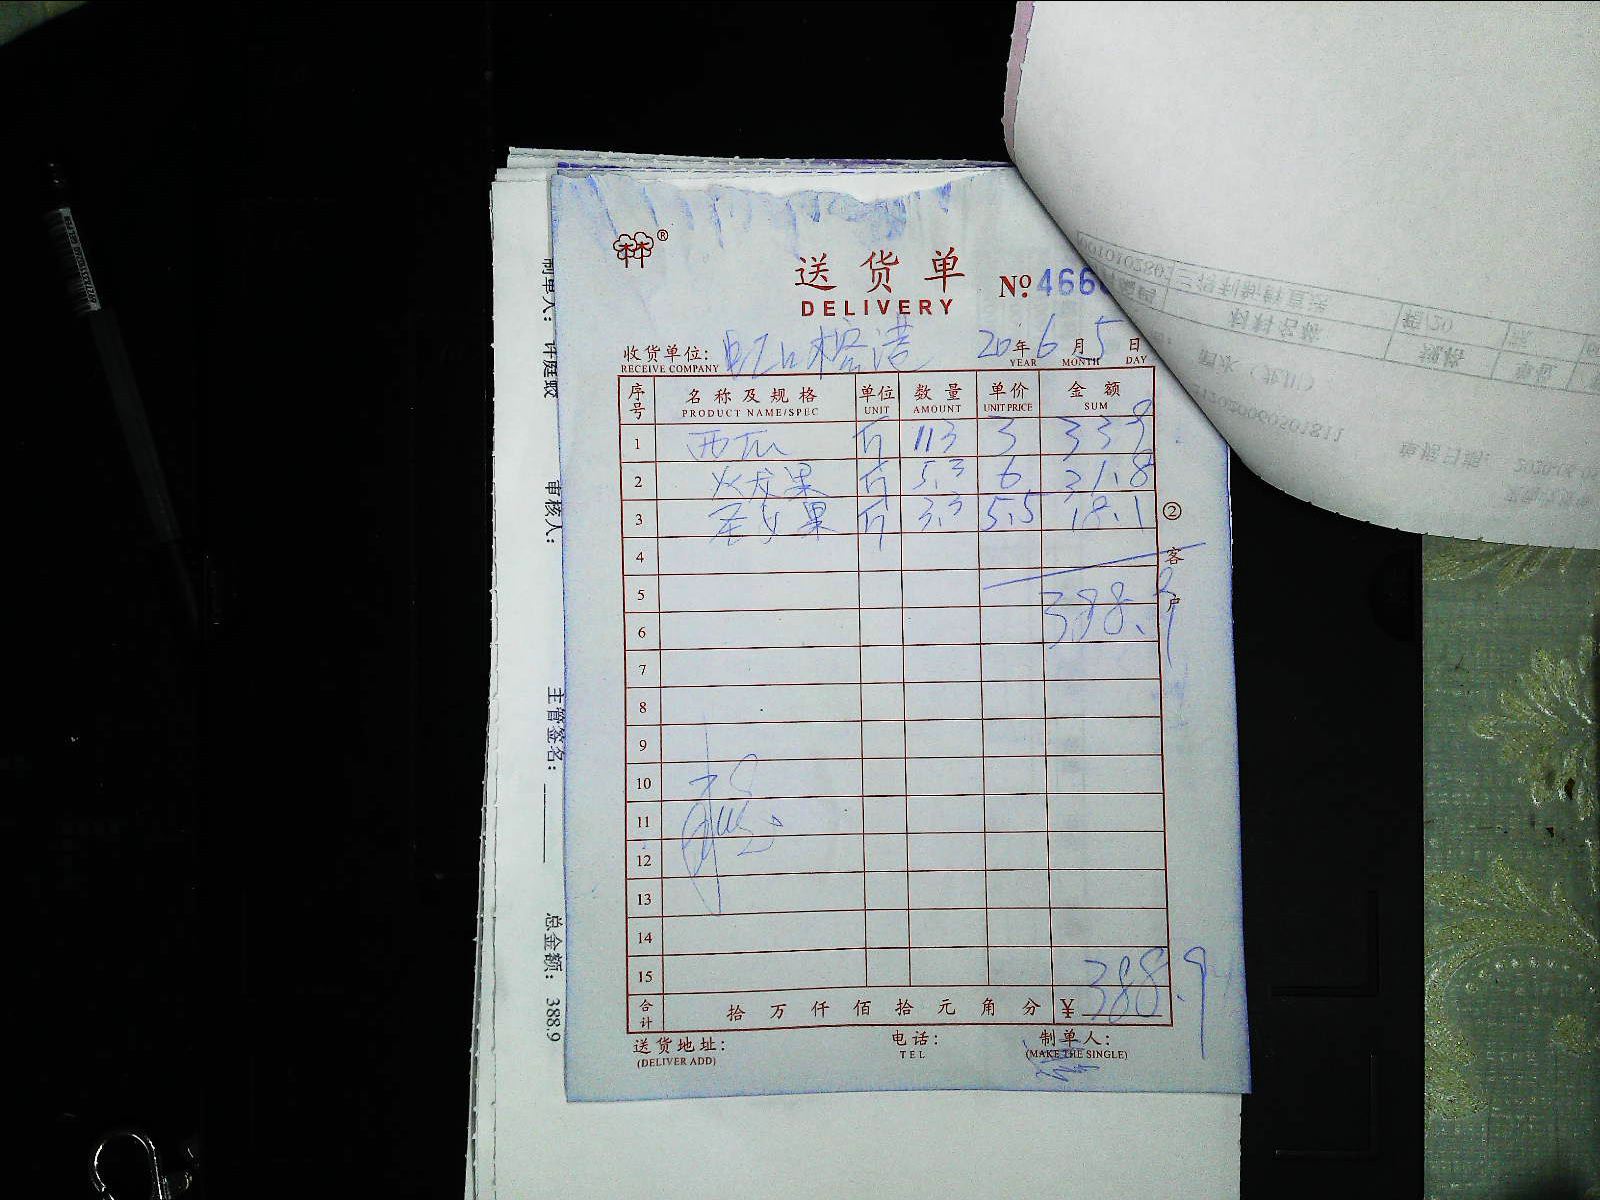 送货单
DELIVERY
No. 466
收货单位: 虹口榕港 20年6月5日
RECEIVE COMPANY YEAR MONTH DAY
序号 名称及规格 单位 数量 单价 金额
PRODUCT NAME/SPEC UNIT AMOUNT UNIT PRICE SUM
1 西瓜 斤 113 3 339
2 火龙果 斤 5.3 6 31.8
3 圣女果 斤 3.3 5.5 18.1
4
5
388.9
6
7
8
9
10
11
12
13
14
15
合计 拾万仟佰拾元角分 ¥ 388.9
送货地址: 电话: 制单人:
(DELIVER ADD) TEL (MAKE THE SINGLE)
② 客户
制单人: 许庭蛟 审核人: 主管签名: 总金额: 388.9